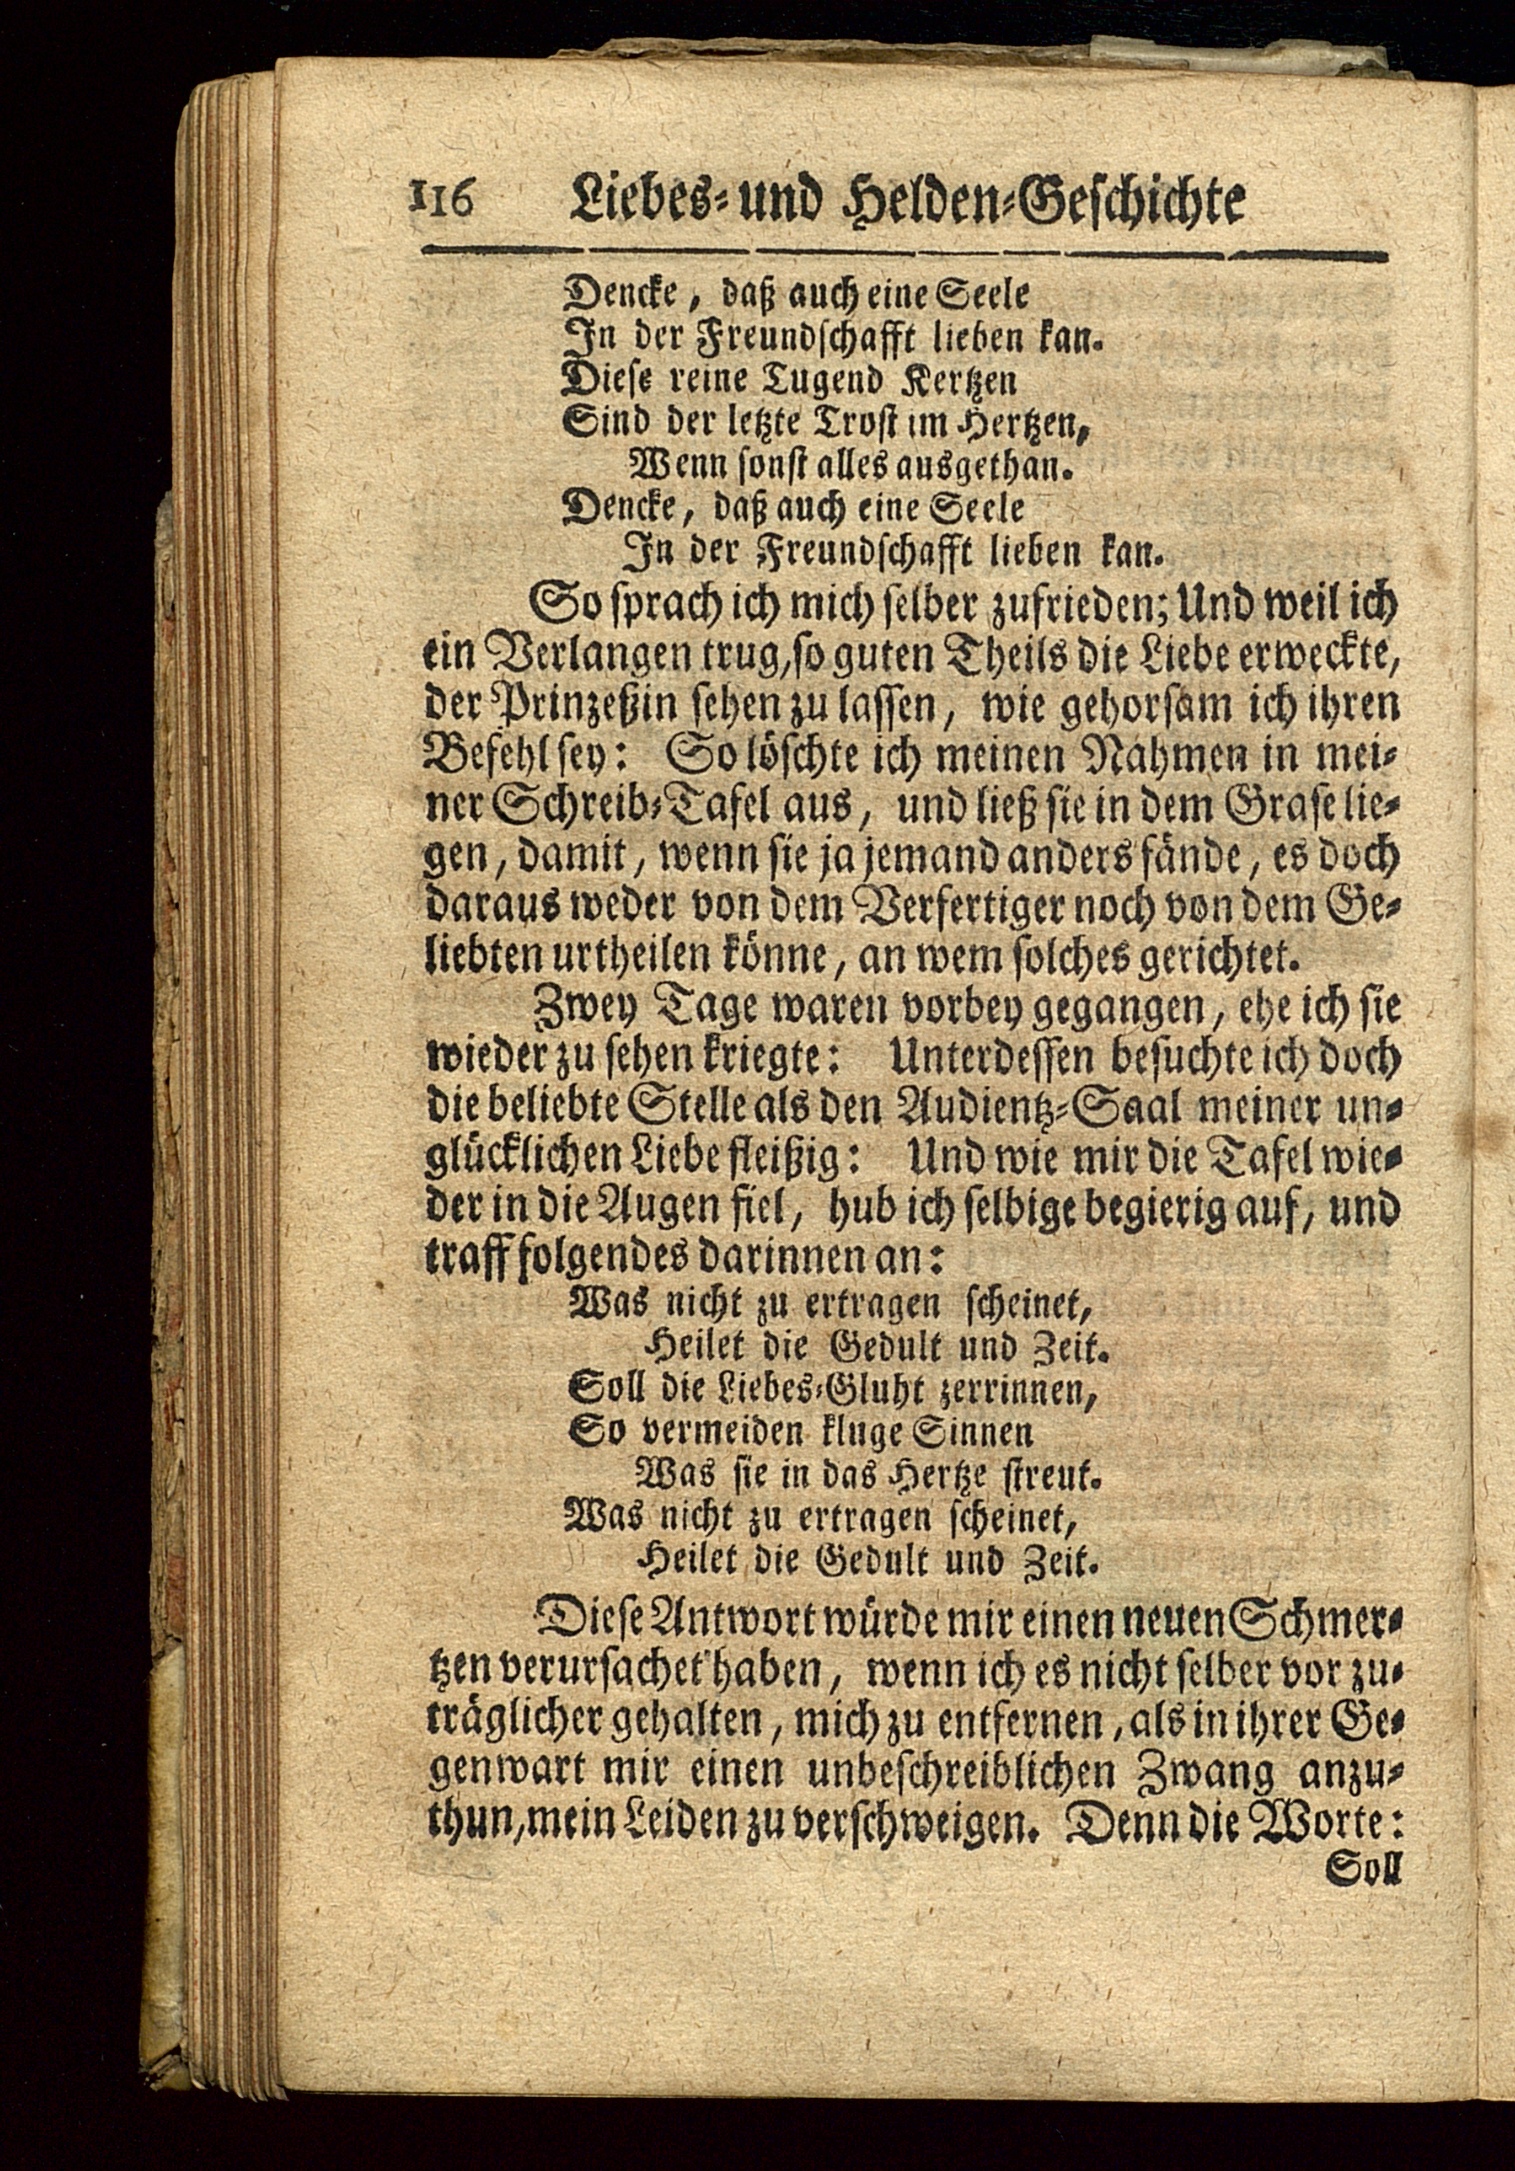 116 Liebes- und Helden-Geschichte
Dencke, daß auch eine Seele
In der Freundschafft lieben kan.
Diese reine Tugend Kertzen
Sind der letzte Trost im Hertzen,
Wenn sonst alles ausgethan.
Dencke, daß auch eine Seele
In der Freundschafft lieben kan.
So sprach ich mich selber zufrieden; Und weil ich
ein Verlangen trug, so guten Theils die Liebe erweckte,
der Prinzeßin sehen zu lassen, wie gehorsam ich ihren
Befehl sey: So löschte ich meinen Nahmen in mei-
ner Schreib-Tafel aus, und ließ sie in dem Grase lie-
gen, damit, wenn sie ja jemand anders fände, es doch
daraus weder von dem Verfertiger noch von dem Ge-
liebten urtheilen könne, an wem solches gerichtet.
Zwey Tage waren vorbey gegangen, ehe ich sie
wieder zu sehen kriegte: Unterdessen besuchte ich doch
die beliebte Stelle als den Audientz-Saal meiner un-
glücklichen Liebe fleißig: Und wie mir die Tafel wie-
der in die Augen fiel, hub ich selbige begierig auf, und
traff folgendes darinnen an:
Was nicht zu ertragen scheinet,
Heilet die Gedult und Zeit.
Soll die Liebes-Gluht zerrinnen,
So vermeiden kluge Sinnen
Was sie in das Hertze streut.
Was nicht zu ertragen scheinet,
Heilet die Gedult und Zeit.
Diese Antwort würde mir einen neuen Schmer-
tzen verursachet haben, wenn ich es nicht selber vor zu-
träglicher gehalten, mich zu entfernen, als in ihrer Ge-
genwart mir einen unbeschreiblichen Zwang anzu-
thun, mein Leiden zu verschweigen. Denn die Worte:
Soll